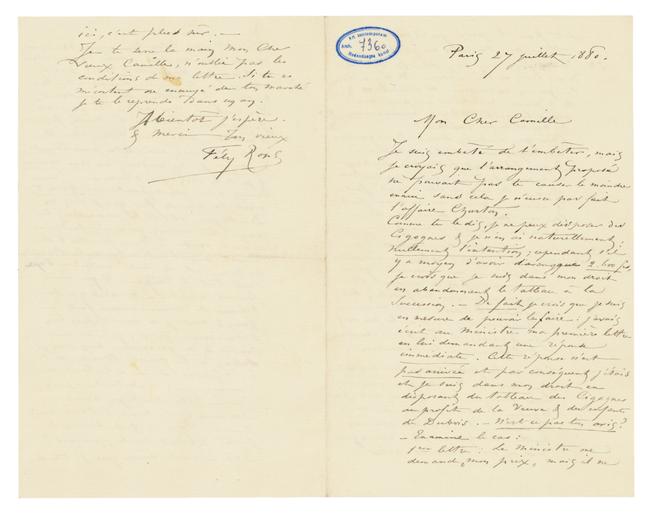 ici, c'est plus sûr. —
Je te serre la main, mon cher
vieux Camille, n'oublie pas les
conditions de ma lettre. Si tu es
mécontent ou ennuyé de ton marché
je te le reprends dans un an.
A bientôt j'espère.
& merci Ton vieux
Fély Rops
7360
Paris 27 juillet 1880.
Mon Cher Camille
Je suis embêté de t'embêter, mais
je croyais que l'arrangement proposé
ne pouvait pas te causer le moindre
ennui sans cela je n'eusse pas fait
l'affaire
Comme tu le dis, je ne peux disposer des
Cigognes & je n'en ai naturellement
nullement l'intention; cependant s'il
y a moyen d'avoir
je crois que je suis dans mon droit
en abandonnant le tableau à la
Succession. — De fait je crois que je suis
en mesure de pouvoir le faire: j'avais
écrit au Ministre ma première lettre
en lui demandant une réponse
immédiate. Cette réponse n'est
pas arrivée et par conséquent j'étais
et je suis dans mon droit en
disposant du tableau des Cigognes
au profit de la Veuve & des enfants
de Dubois. — N'est-ce pas ton avis?
— Examine le cas:
1ère lettre: Le Ministre me
demande, mon prix, mais il ne